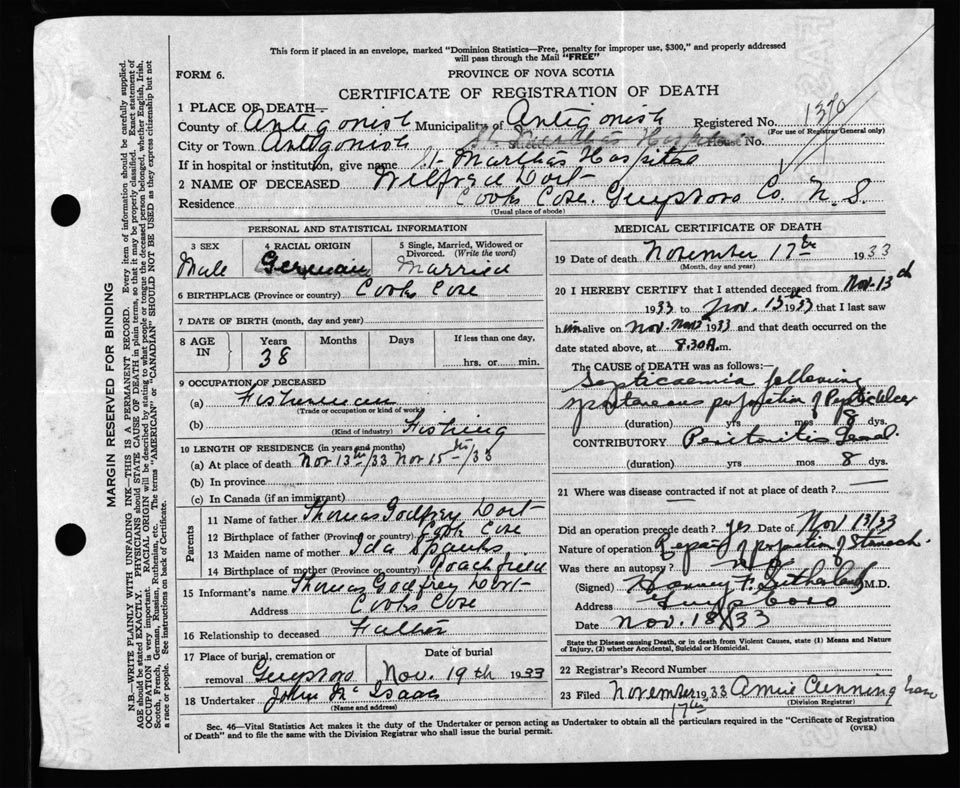 This form if placed in an envelope, marked "Dominion Statistics—Free, penalty for improper use, $300," and properly addressed
will pass through the Mail "FREE"
FORM 6.
PROVINCE OF NOVA SCOTIA
CERTIFICATE OF REGISTRATION OF DEATH
1 PLACE OF DEATH—
County of Antigonish Municipality of Antigonish Registered No. 1370
(For use of Registrar General only)
City or Town Antigonish St. Martha's Hospital House No.
If in hospital or institution, give name St. Marthas Hospital
2 NAME OF DECEASED Wilfred Dort
Residence Cooks Cove. Guysboro Co. N.S.
(Usual place of abode)
PERSONAL AND STATISTICAL INFORMATION
3 SEX 4 RACIAL ORIGIN 5 Single, Married, Widowed or
Divorced. (Write the word)
Male German Married
6 BIRTHPLACE (Province or country) Cooks Cove
7 DATE OF BIRTH (month, day and year)
8 AGE IN Years Months Days If less than one day,
38 hrs. or min.
9 OCCUPATION OF DECEASED
(a) Fisherman
(Trade or occupation or kind of work)
(b) Fishing
(Kind of industry)
10 LENGTH OF RESIDENCE (in years and months)
(a) At place of death Nov 13th/33 Nov 15th/33
(b) In province
(c) In Canada (if an immigrant)
Parents
11 Name of father Thomas Godfrey Dort
12 Birthplace of father (Province or country) Cook Cove
13 Maiden name of mother Ida Spanks
14 Birthplace of mother (Province or country) Roachfield
15 Informant's name Thomas Godfrey Dort
Address Cooks Cove
16 Relationship to deceased Father
17 Place of burial, cremation or Date of burial
removal Guysboro Nov. 19th 1933
18 Undertaker John Mc Isaac
(Name and address)
MEDICAL CERTIFICATE OF DEATH
19 Date of death November 17th 1933
(Month, day and year)
20 I HEREBY CERTIFY that I attended deceased from Nov-13th
1933 to Nov. 15th 1933 that I last saw
him alive on Nov. 1933 and that death occurred on
date stated above, at 8.30 A.m.
The CAUSE of DEATH was as follows:—
Septicaemia following
spontaneous perforation of Peptic Ulcer
(duration) yrs mos 8 dys.
CONTRIBUTORY Peritonitis
(duration) yrs mos 8 dys.
21 Where was disease contracted if not at place of death?
Did an operation precede death? yes Date of Nov 13/33
Nature of operation Repair of perforation of Stomach.
Was there an autopsy? No
(Signed) Harvey F. Sutherland M.D.
Address Guysboro
Date Nov. 18/33
State the Disease causing Death, or in death from Violent Causes, state (1) Means and Nature
of Injury, (2) whether Accidental, Suicidal or Homicidal.
22 Registrar's Record Number
23 Filed November 17th 1933 Annie Cunningham
(Division Registrar)
Sec. 46—Vital Statistics Act makes it the duty of the Undertaker or person acting as Undertaker to obtain all the particulars required in the "Certificate of Registration
of Death" and to file the same with the Division Registrar who shall issue the burial permit.
(OVER)
MARGIN RESERVED FOR BINDING
N.B.—WRITE PLAINLY WITH UNFADING INK—THIS IS A PERMANENT RECORD. Every item of information should be carefully supplied.
AGE should be stated EXACTLY. PHYSICIANS should STATE CAUSE OF DEATH in plain terms, so that it may be properly classified. Exact statement of
OCCUPATION is very important. RACIAL ORIGIN will be described by stating to what people or tongue the deceased person belonged, whether English, Irish,
Scotch, French, German, Russian, Ruthenian, etc. The terms "AMERICAN" or "CANADIAN" SHOULD NOT BE USED as they express citizenship but not
a race or people. See instructions on back of Certificate.